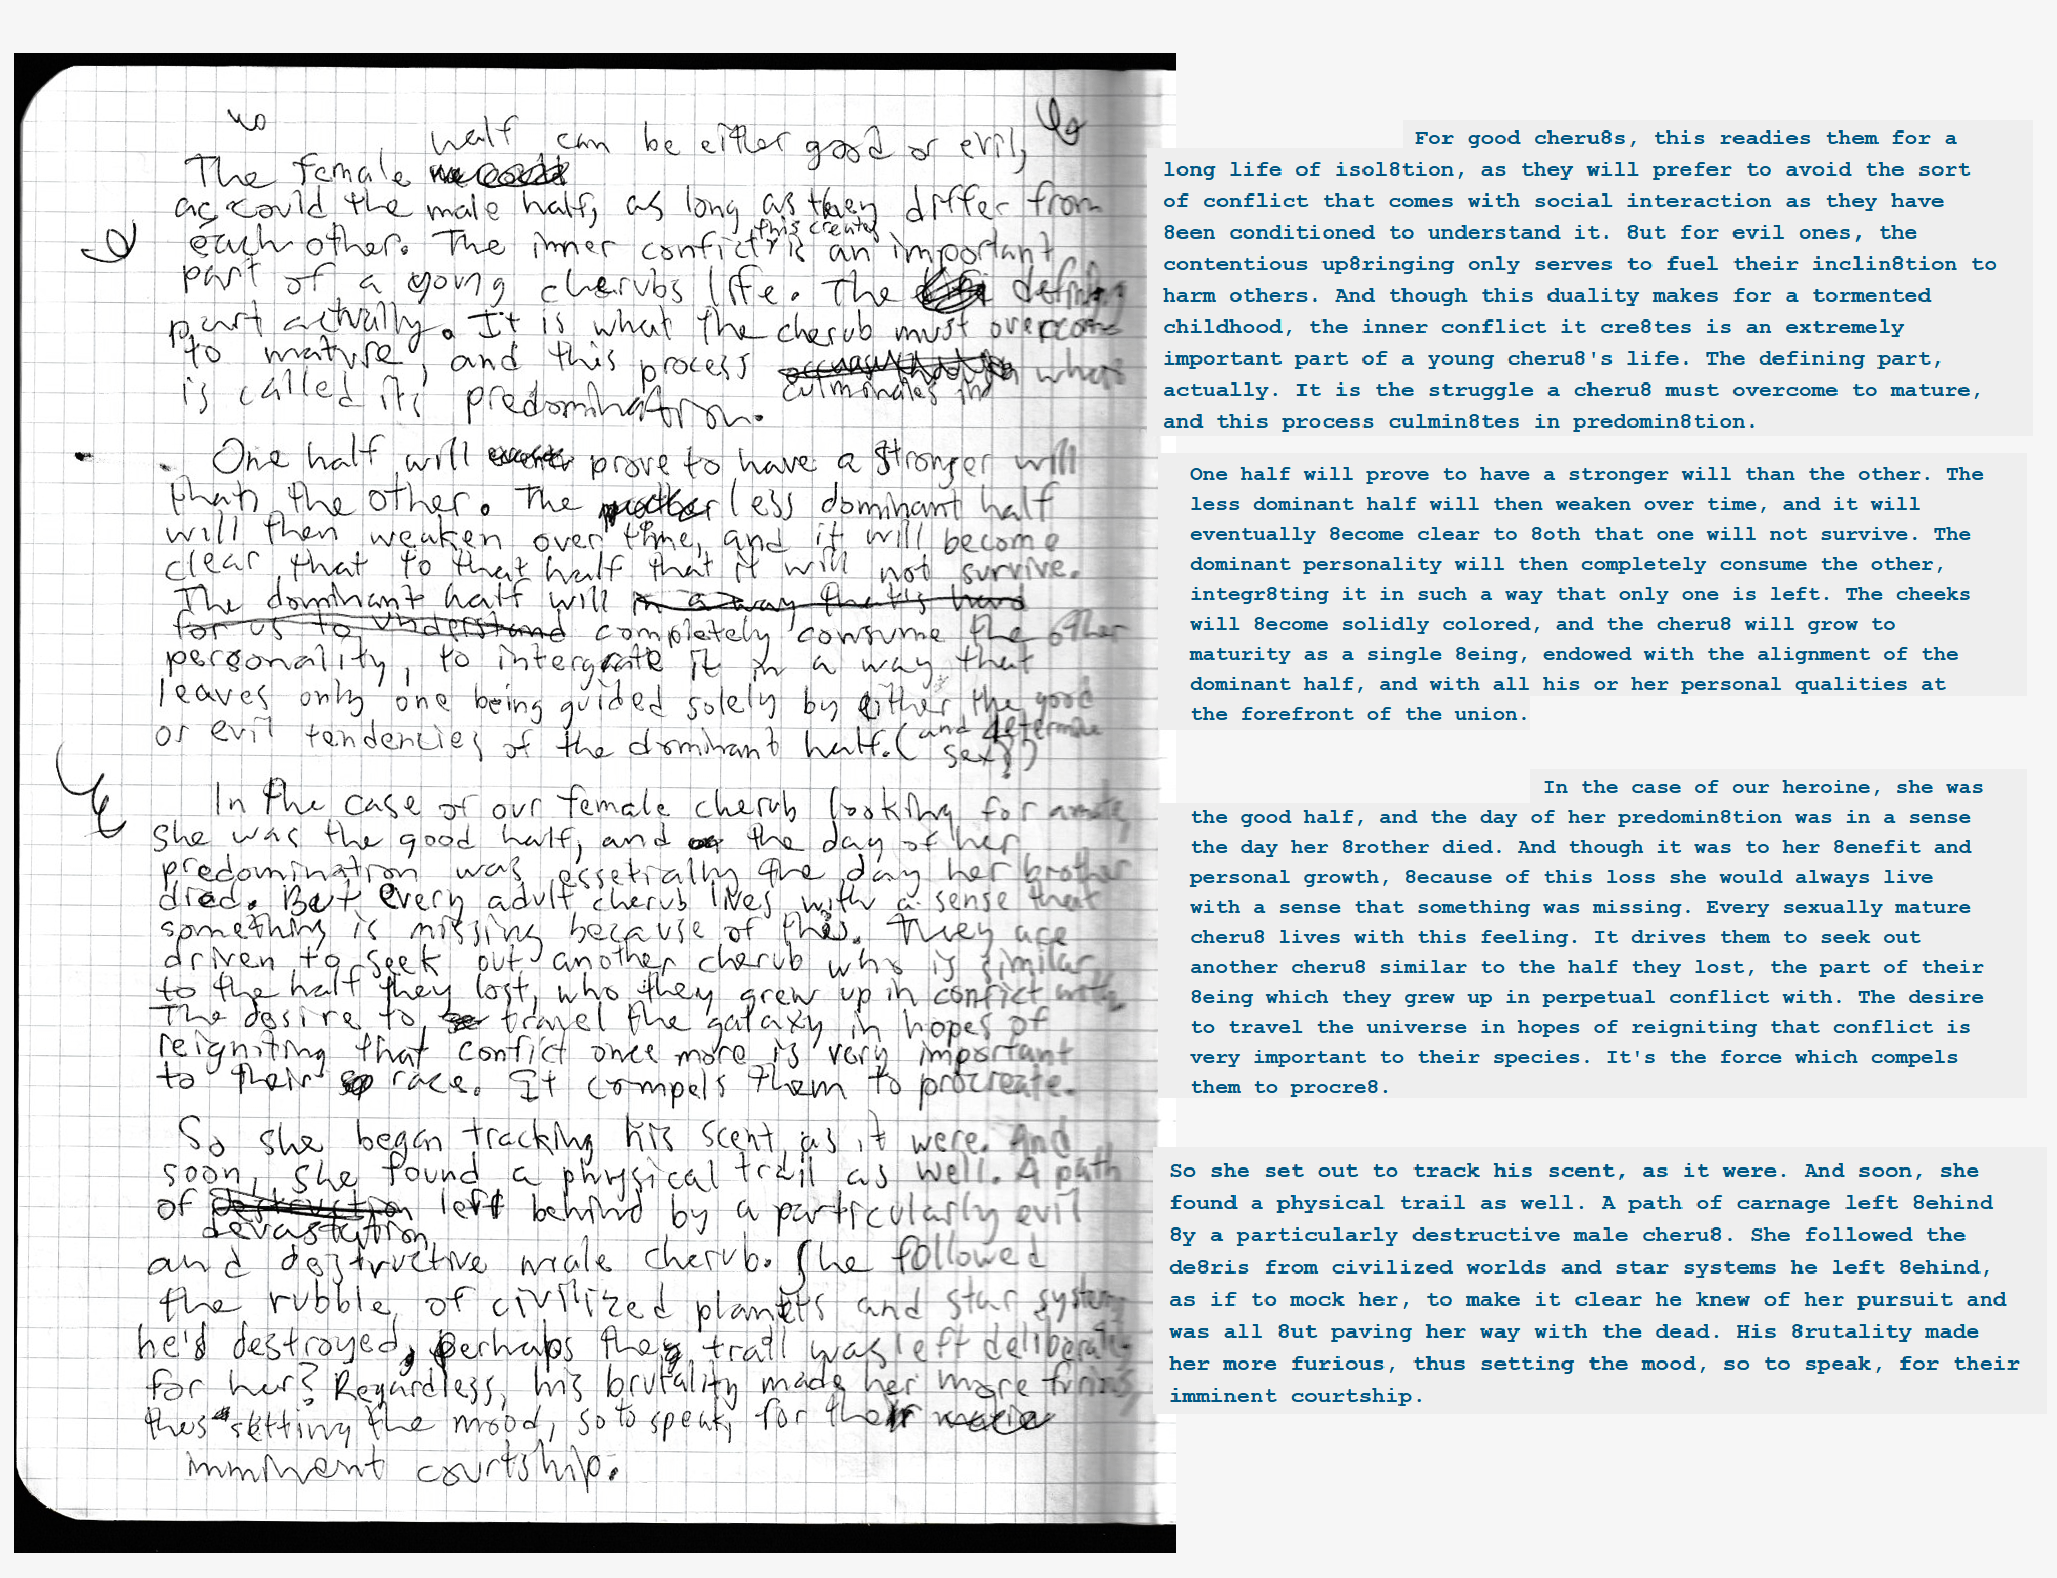 half can be either good or evil,
The female
as could the male half, as long as they differ from
this creates
each other. The inner confict is an important
part of a yong cherubs life. The defining
part actually. It is what the cherub must overcome
to mature, and this process what
is called its predomination. culminates in
One half will prove to have a stronger will
than the other. The less dominant half
will then weaken over time, and it will become
clear that to that half that it will not survive.
The dominant half will in a way that is hard
for us to understand completely consume the other
personality, to intergrate it in a way that
leaves only one being guided solely by either the good
or evil tendencies of the dominant half. (and determine
sex?)
In the case of our female cherub looking for a mate,
she was the good half, and the day of her
predomination was essetially the day her brother
died. But every adult cherub lives with a sense that
something is missing because of this. They are
driven to seek out another cherub who is similar
to the half they lost, who they grew up in confict with.
The desire to travel the galaxy in hopes of
reigniting that confict once more is very important
to their race. It compels them to procreate.
So she began tracking his scent as it were. And
soon, she found a physical trail as well. A path
of destruction left behind by a particularly evil
devastation
and destructive male cherub. She followed
the rubble of civilized planets and star systems
he'd destroyed, perhaps the trail was left deliberately
for her? Regardless, his brutality made her more furious,
thus setting the mood, so to speak, for their
imminent courtship.
For good cheru8s, this readies them for a
long life of isol8tion, as they will prefer to avoid the sort
of conflict that comes with social interaction as they have
8een conditioned to understand it. 8ut for evil ones, the
contentious up8ringing only serves to fuel their inclin8tion to
harm others. And though this duality makes for a tormented
childhood, the inner conflict it cre8tes is an extremely
important part of a young cheru8's life. The defining part,
actually. It is the struggle a cheru8 must overcome to mature,
and this process culmin8tes in predomin8tion.
One half will prove to have a stronger will than the other. The
less dominant half will then weaken over time, and it will
eventually 8ecome clear to 8oth that one will not survive. The
dominant personality will then completely consume the other,
integr8ting it in such a way that only one is left. The cheeks
will 8ecome solidly colored, and the cheru8 will grow to
maturity as a single 8eing, endowed with the alignment of the
dominant half, and with all his or her personal qualities at
the forefront of the union.
In the case of our heroine, she was
the good half, and the day of her predomin8tion was in a sense
the day her 8rother died. And though it was to her 8enefit and
personal growth, 8ecause of this loss she would always live
with a sense that something was missing. Every sexually mature
cheru8 lives with this feeling. It drives them to seek out
another cheru8 similar to the half they lost, the part of their
8eing which they grew up in perpetual conflict with. The desire
to travel the universe in hopes of reigniting that conflict is
very important to their species. It's the force which compels
them to procre8.
So she set out to track his scent, as it were. And soon, she
found a physical trail as well. A path of carnage left 8ehind
8y a particularly destructive male cheru8. She followed the
de8ris from civilized worlds and star systems he left 8ehind,
as if to mock her, to make it clear he knew of her pursuit and
was all 8ut paving her way with the dead. His 8rutality made
her more furious, thus setting the mood, so to speak, for their
imminent courtship.